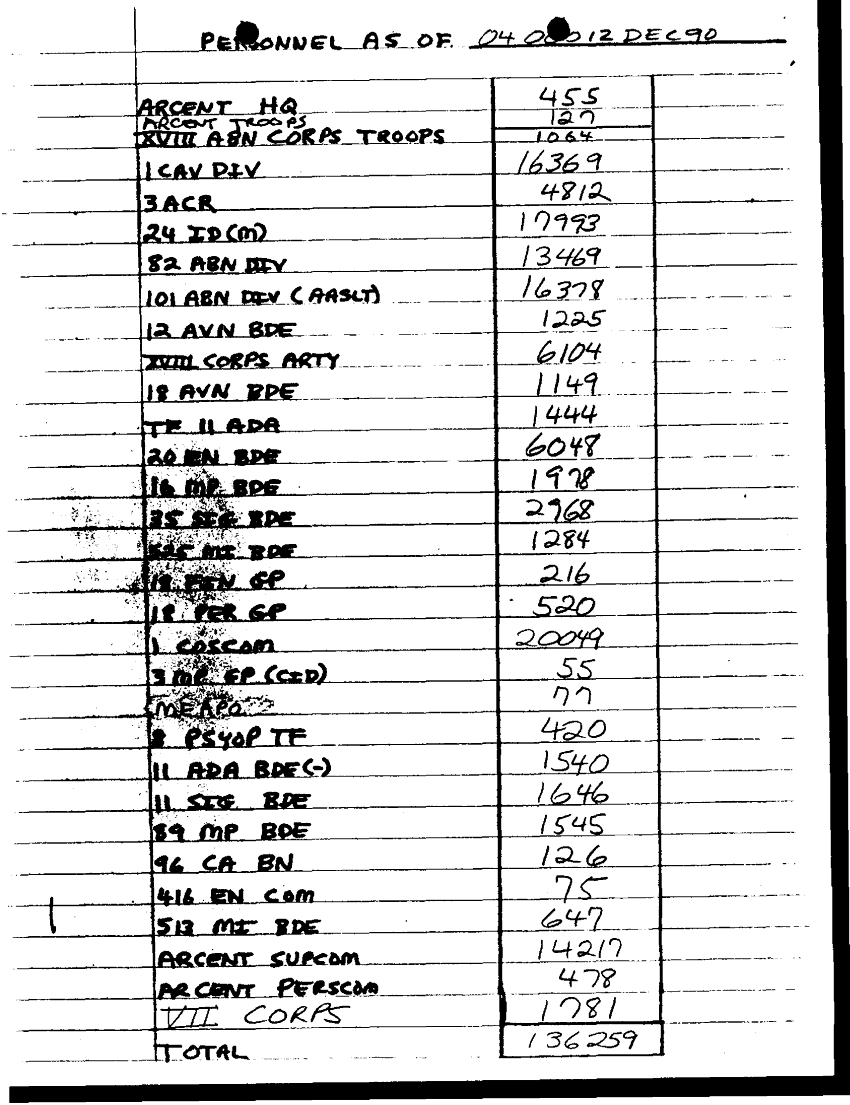 PERSONNEL AS OF 04 12 DEC 90
ARCENT HQ 455
ARCENT TROOPS 127
XVIII ABN CORPS TROOPS 1064
1 CAV DIV 16369
3 ACR 4812
24 ID (M) 17993
82 ABN DIV 13469
101 ABN DIV (AASLT) 16378
12 AVN BDE 1225
XVIII CORPS ARTY 6104
18 AVN BDE 1149
TF 11 ADA 1444
20 EN BDE 6048
16 MP BDE 1978
35 SIG BDE 2968
525 MI BDE 1284
18 FIN GP 216
18 PER GP 520
1 COSCOM 20049
3 MP GP (CID) 55
MEAPO 77
8 PSYOP TF 420
11 ADA BDE (-) 1540
11 SIG BDE 1646
89 MP BDE 1545
96 CA BN 126
416 EN COM 75
513 MI BDE 647
ARCENT SUPCOM 14217
ARCENT PERSCOM 478
VII CORPS 1781
TOTAL 136259